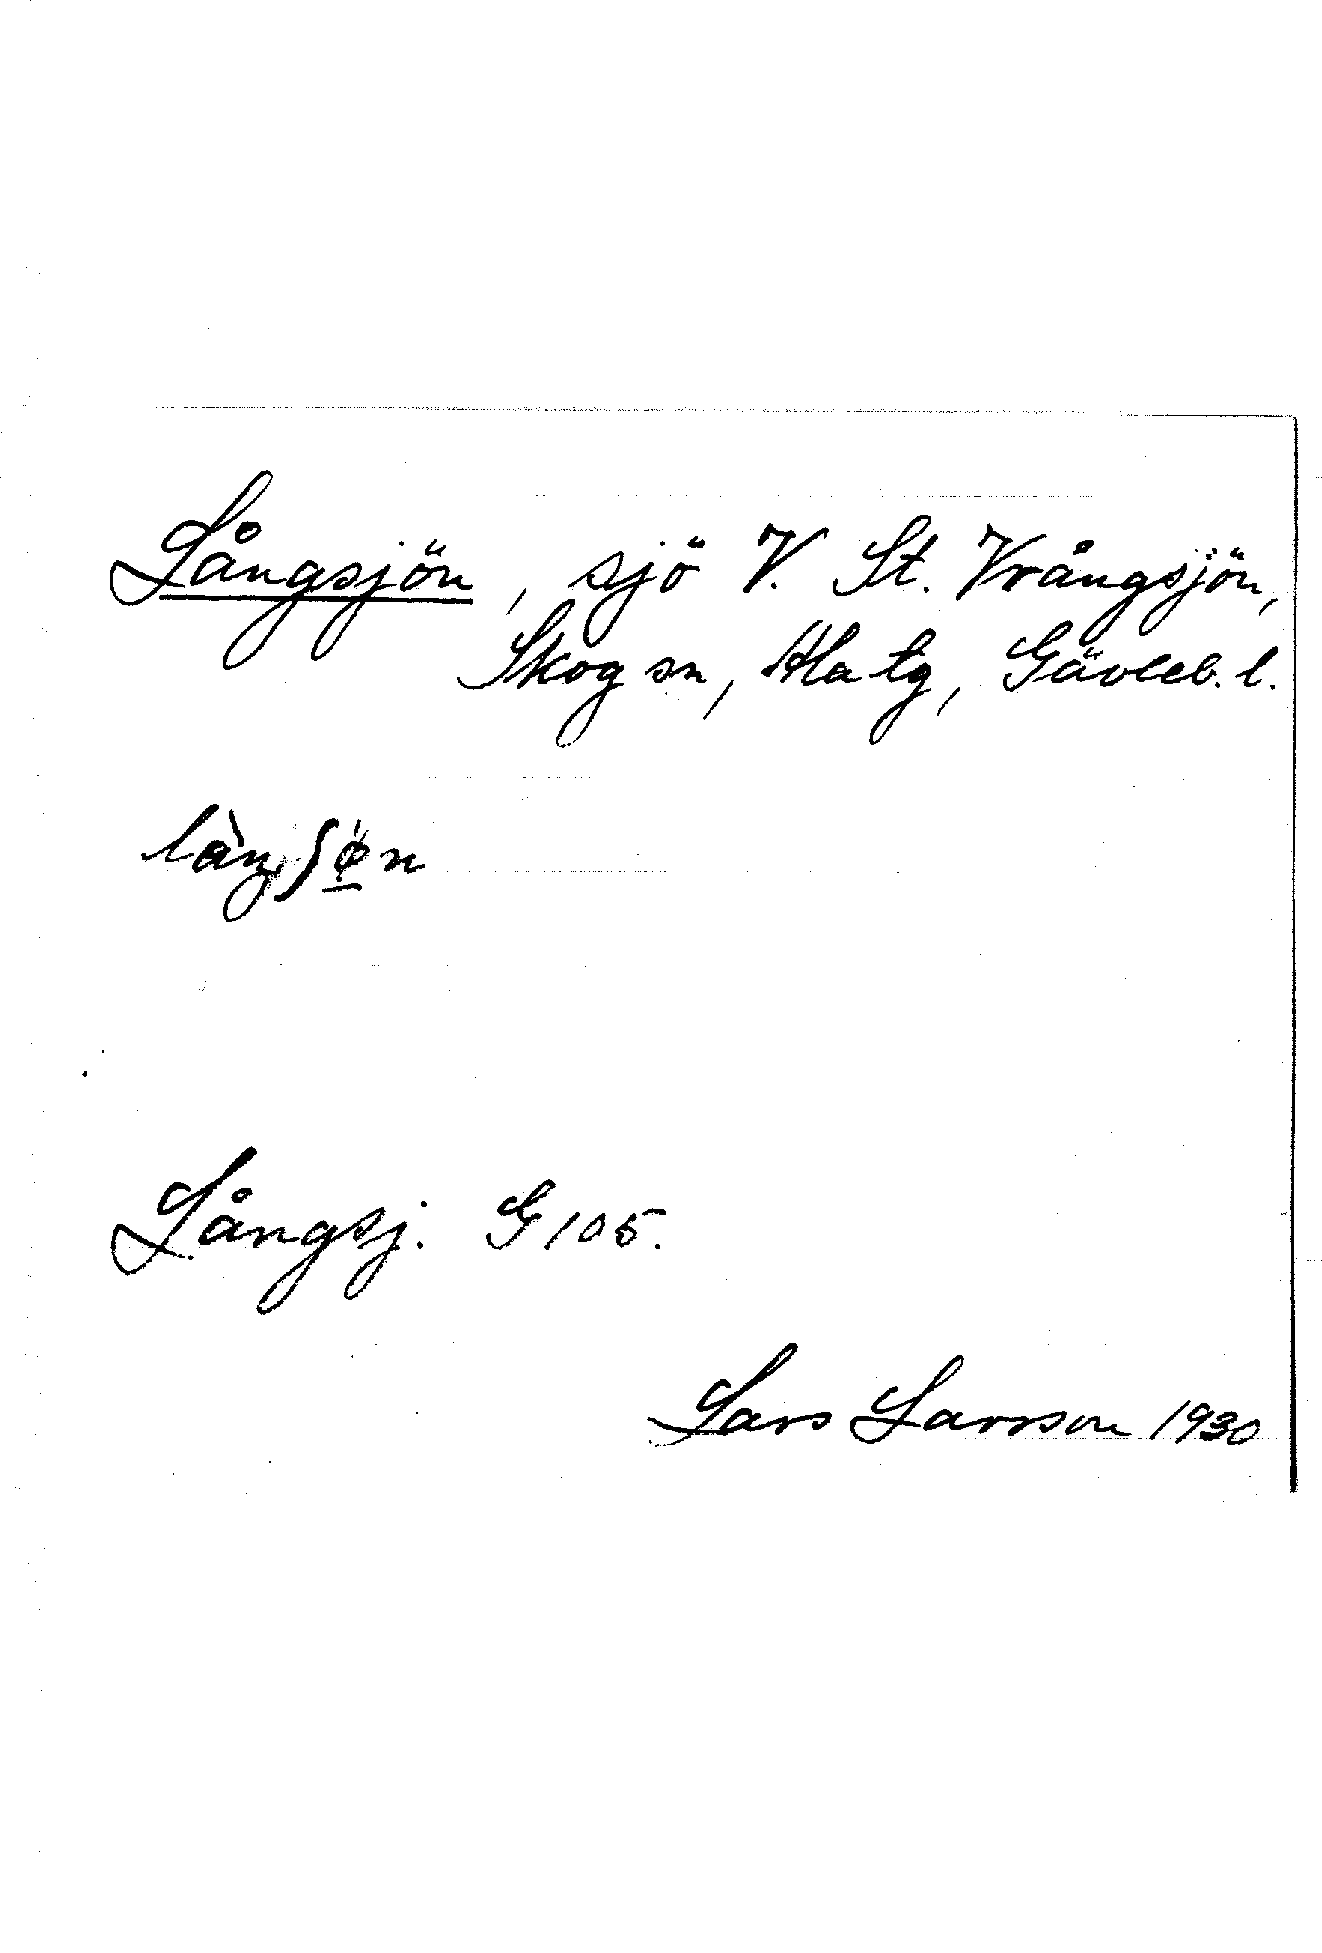 Långsjön, sjö V. St. Vrångsjön,
Skog sn, Ala tg, Gävleb. l.
làŋʃøn
Långsj. G 105.
Lars Larsson 1930